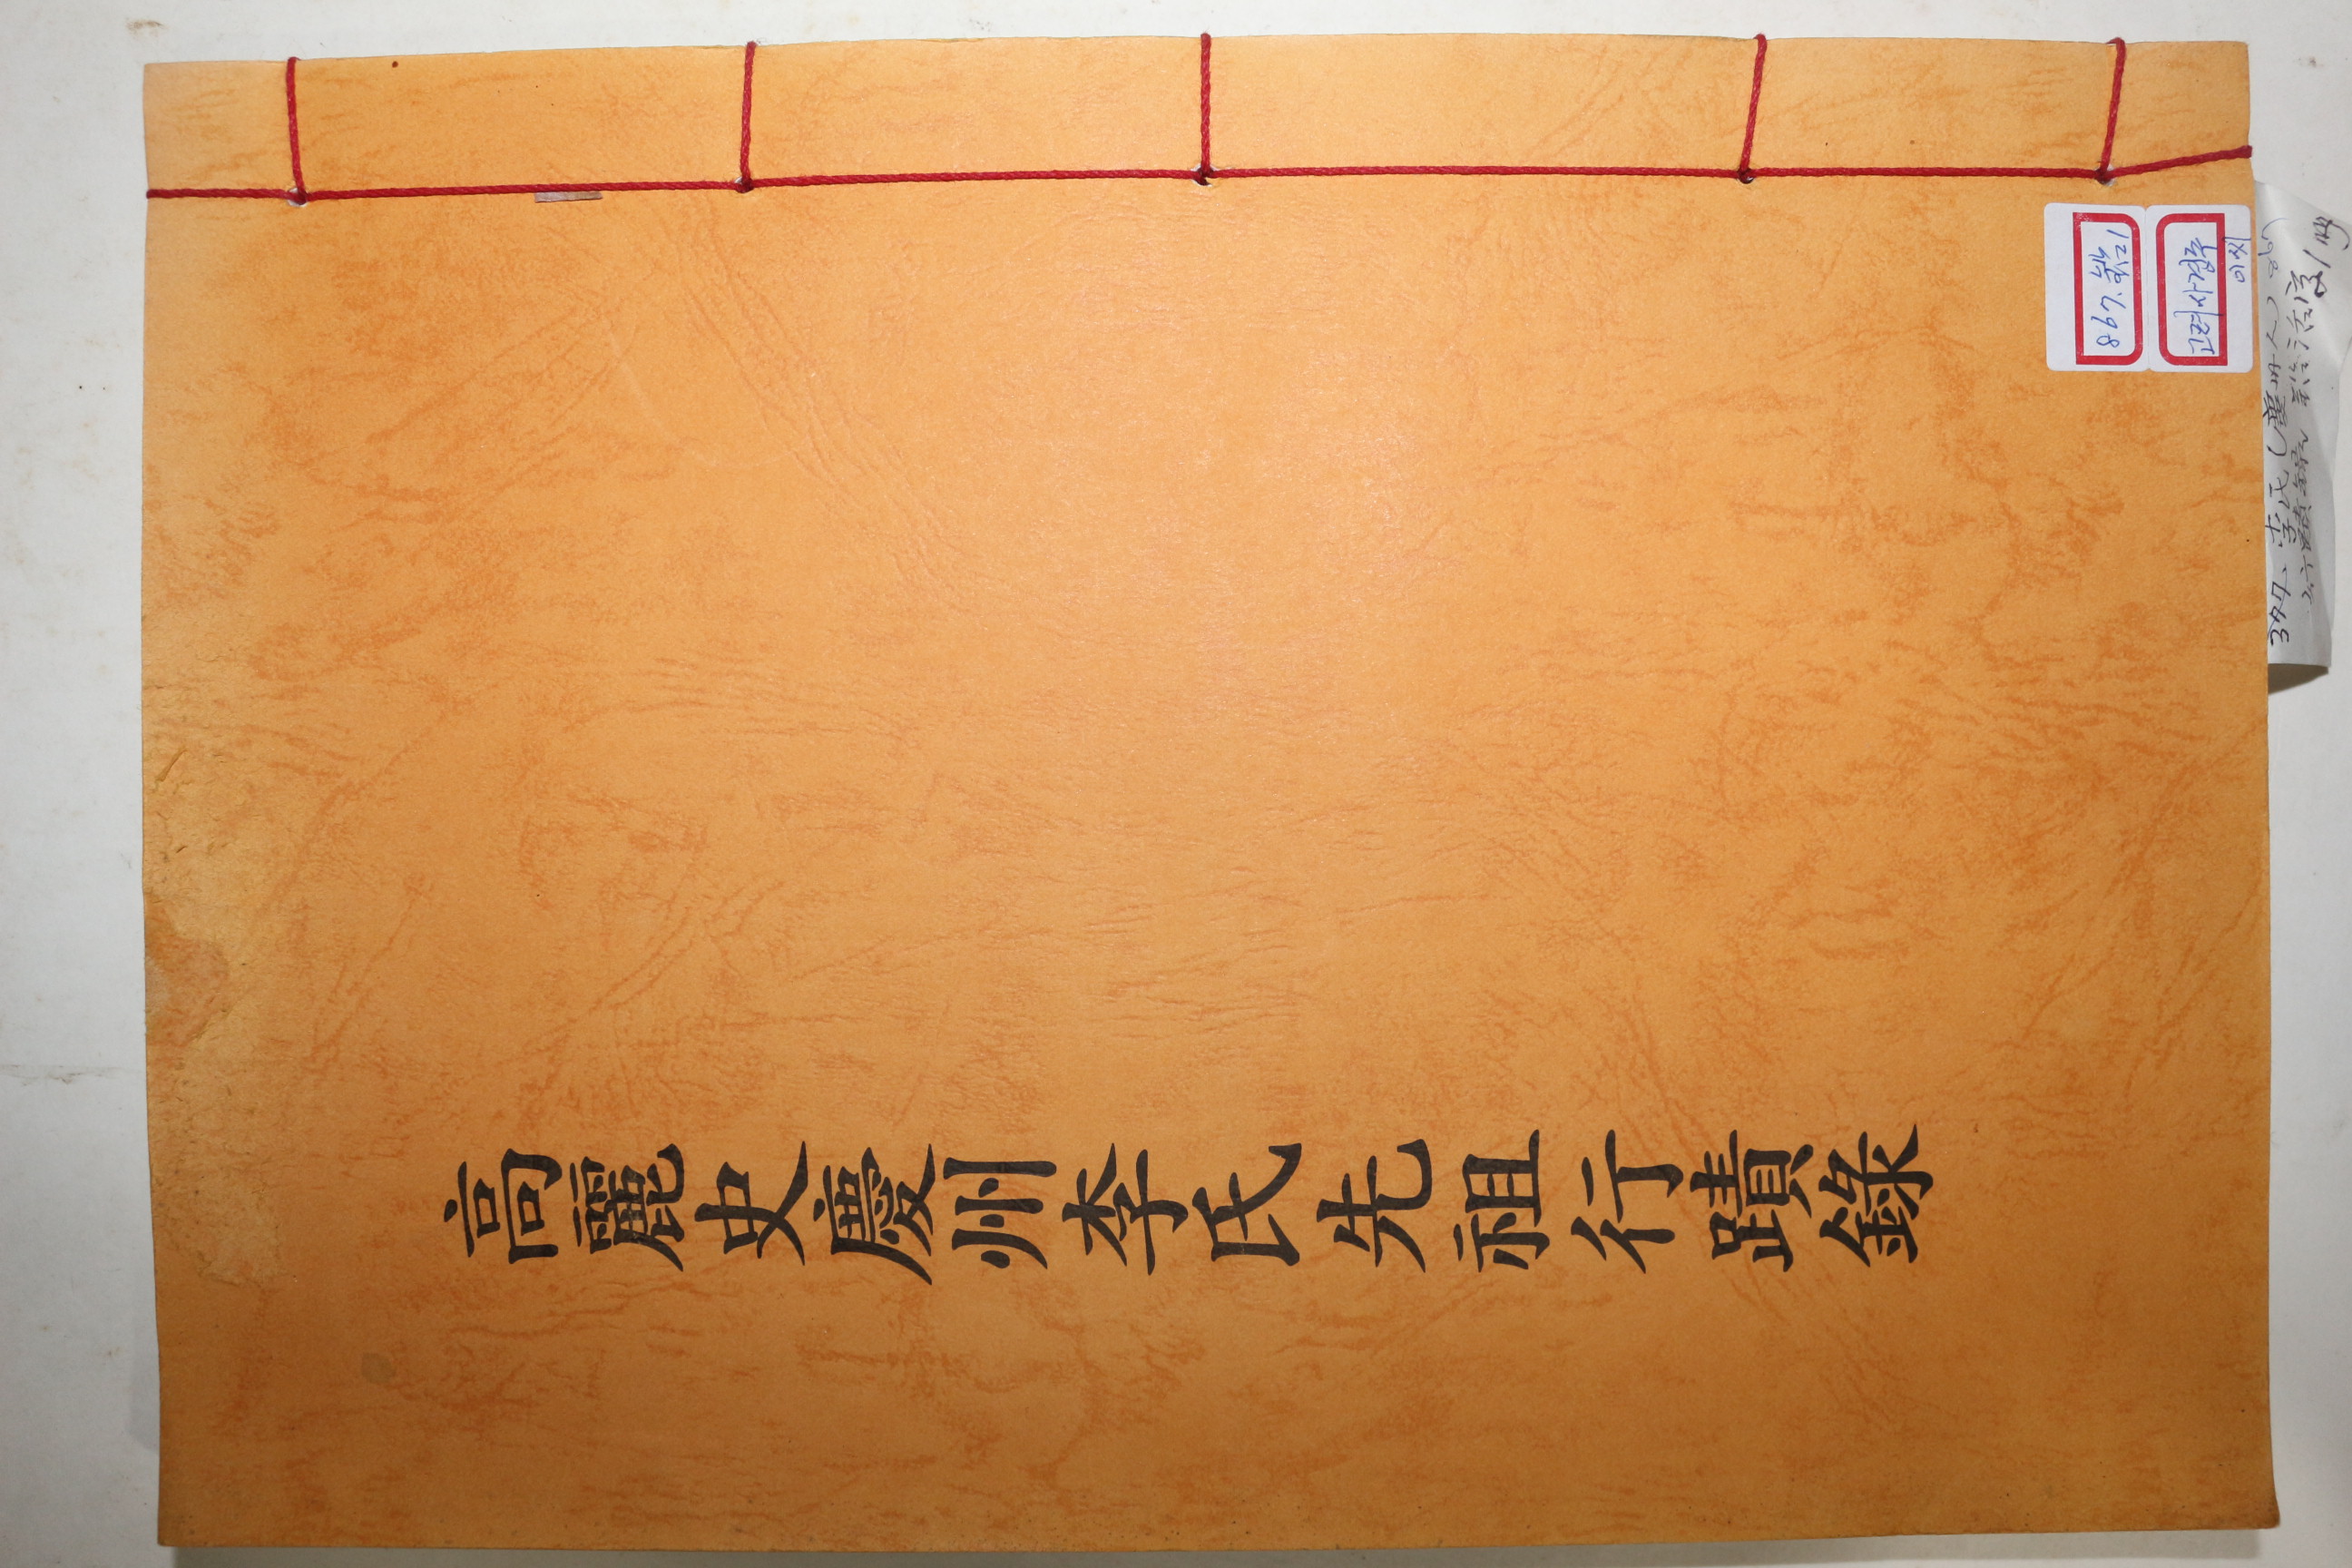 高麗史慶州李氏先祖行蹟錄
867. 鉛1
고려사경주
이씨
377. 李氏(慶州人) 867
行蹟錄 鉛活字1冊